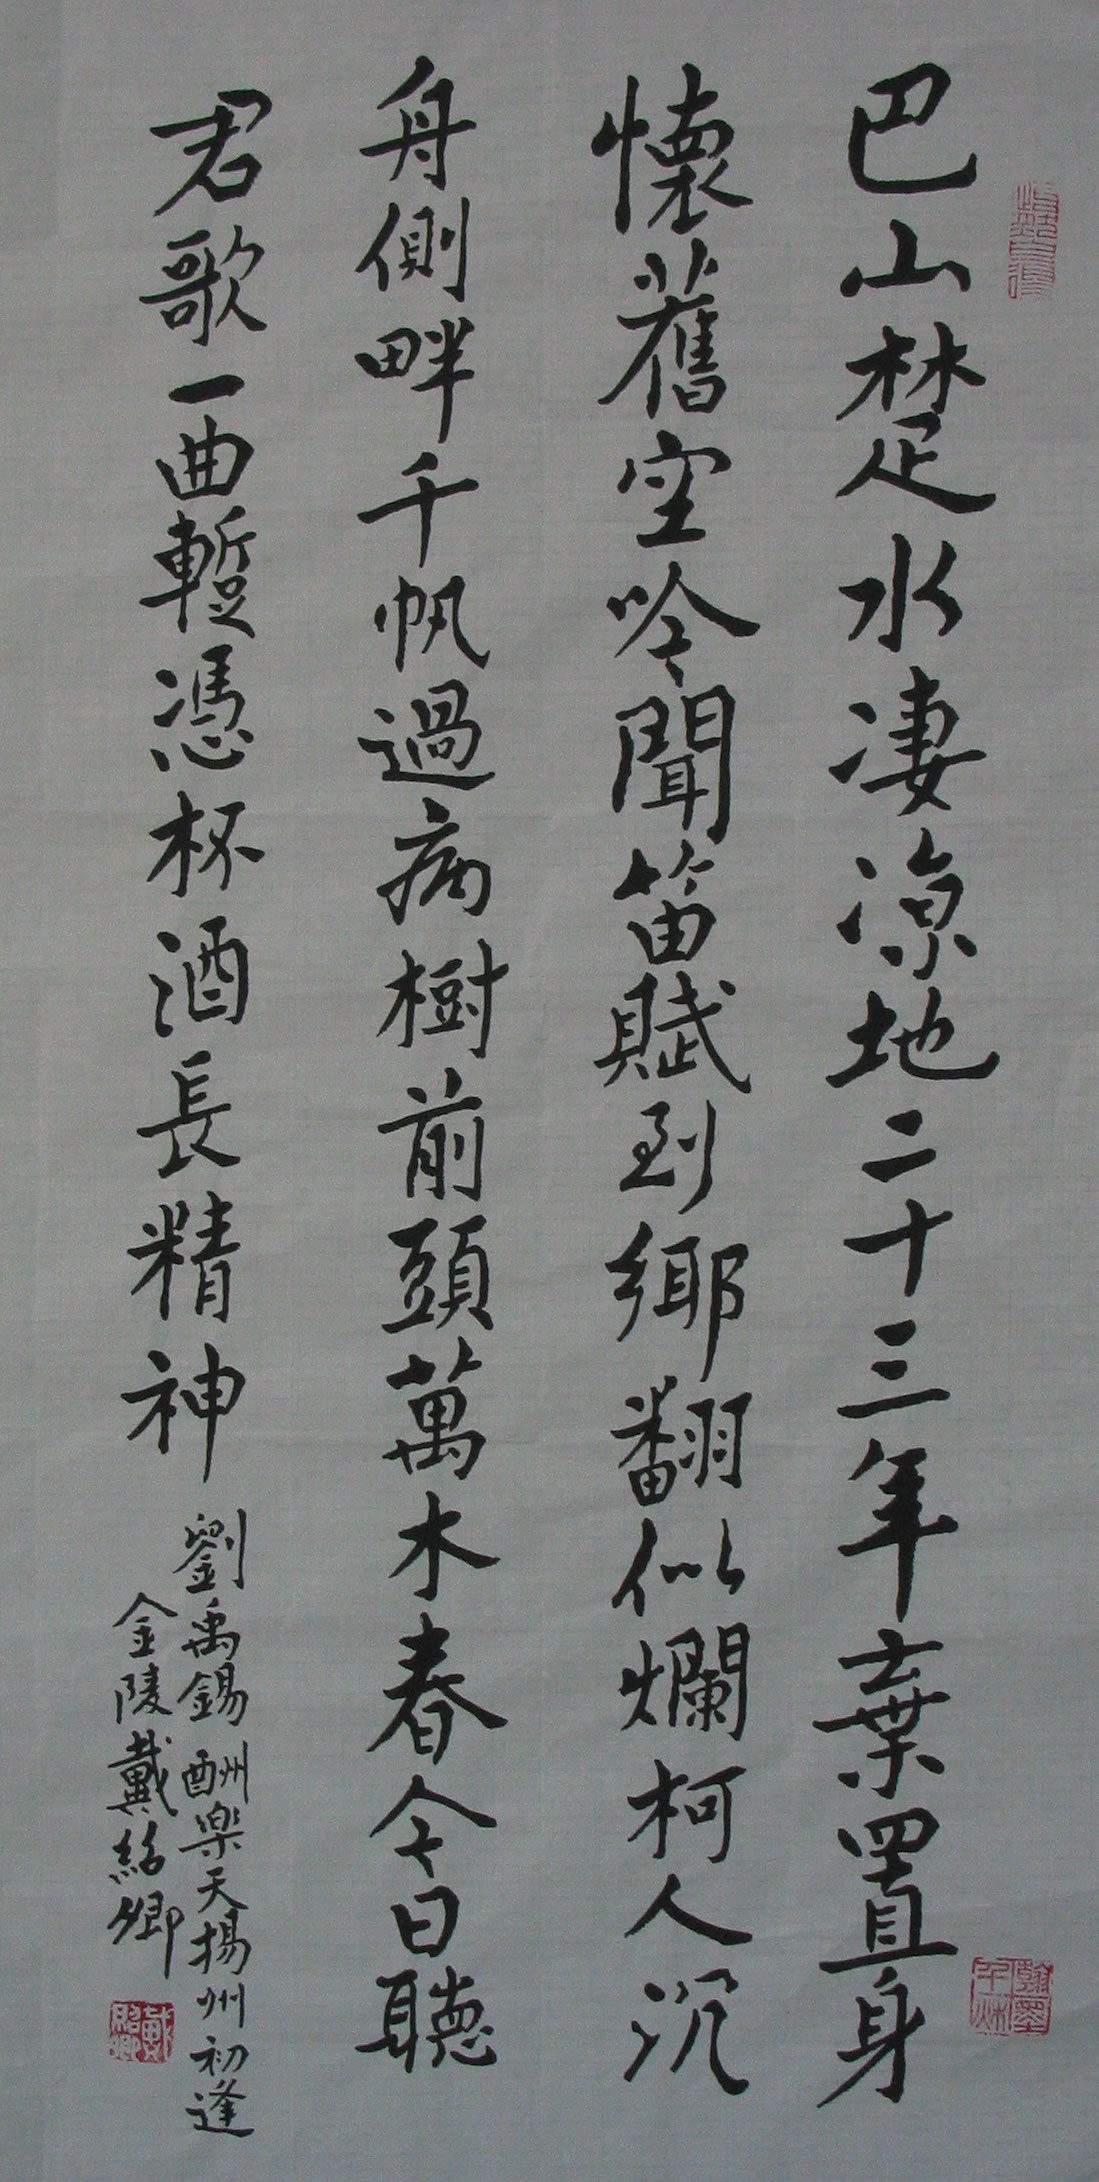 巴山楚水凄涼地二十三年棄置身
懷舊空吟聞笛賦到鄉翻似爛柯人沉
舟側畔千帆過病樹前頭萬木春今日聽
君歌一曲暫憑杯酒長精神
劉禹錫酬樂天揚州初逢
金陵戴紹卿
翰墨千秋